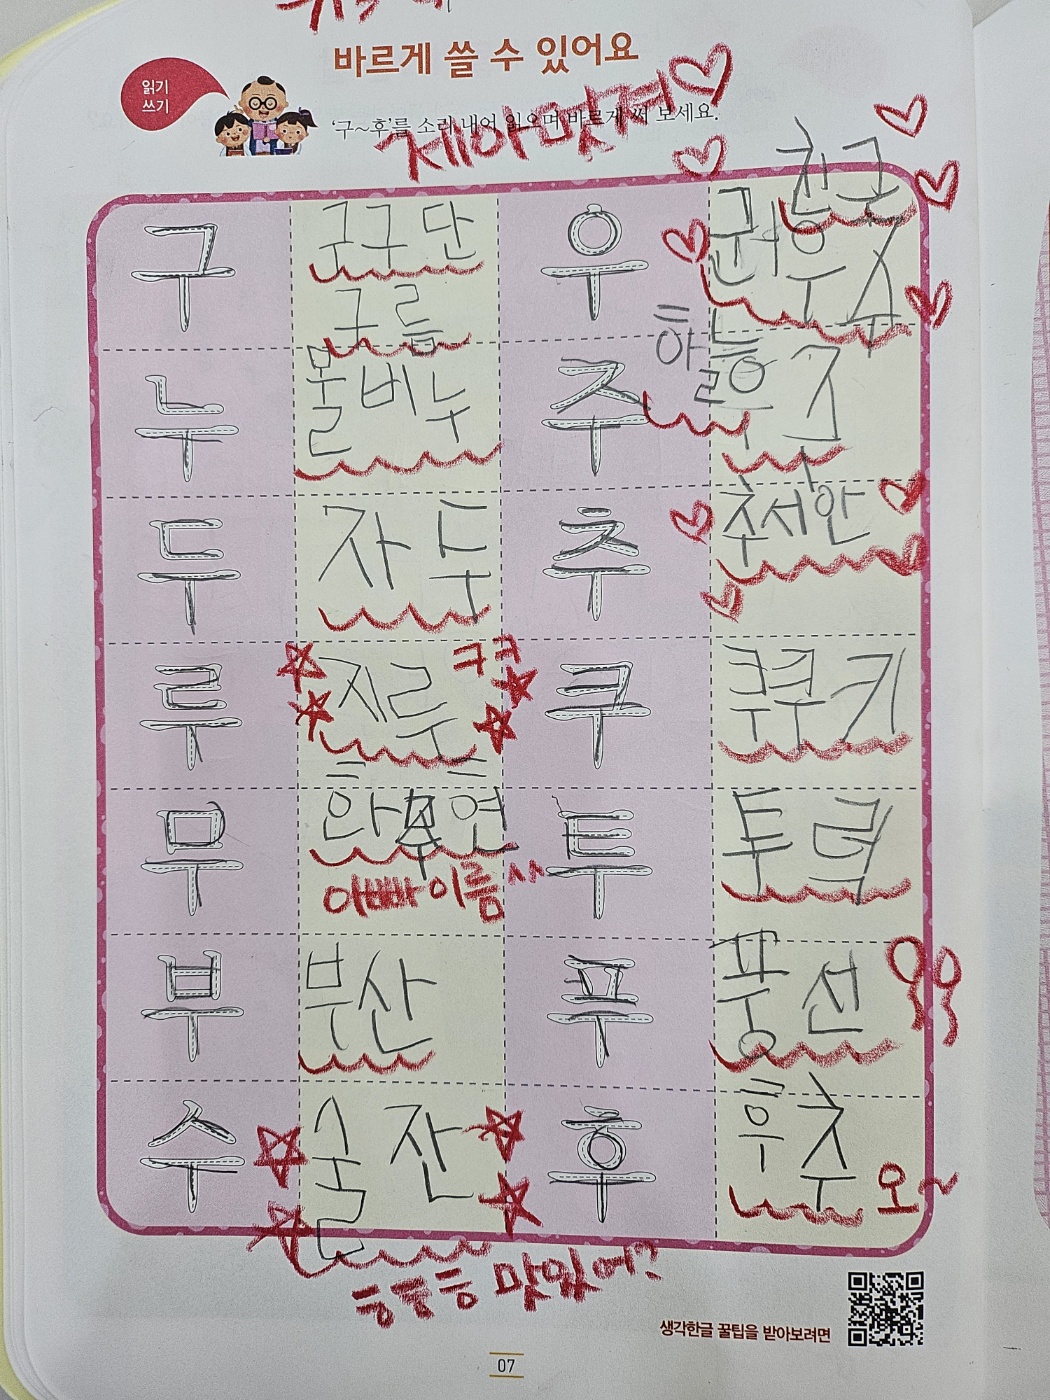 바르게 쓸 수 있어요
읽기
쓰기
'구~후'를 소리 내어 읽으며 바르게 써 보세요.
제아 맞져♡
구 구구단 우 친구
구름
누 물비누 주 하늘 우주
두 자두 추 추서안
루 지루 ㅋㅋ 쿠 쿠쿠키
무 하무연 투 투덕
아빠 이름 ^^
부 부산 푸 풍선
수 술잔 후 후추
오~
흐흐흐 맛있어?
생각한글 꿀팁을 받아보려면
07